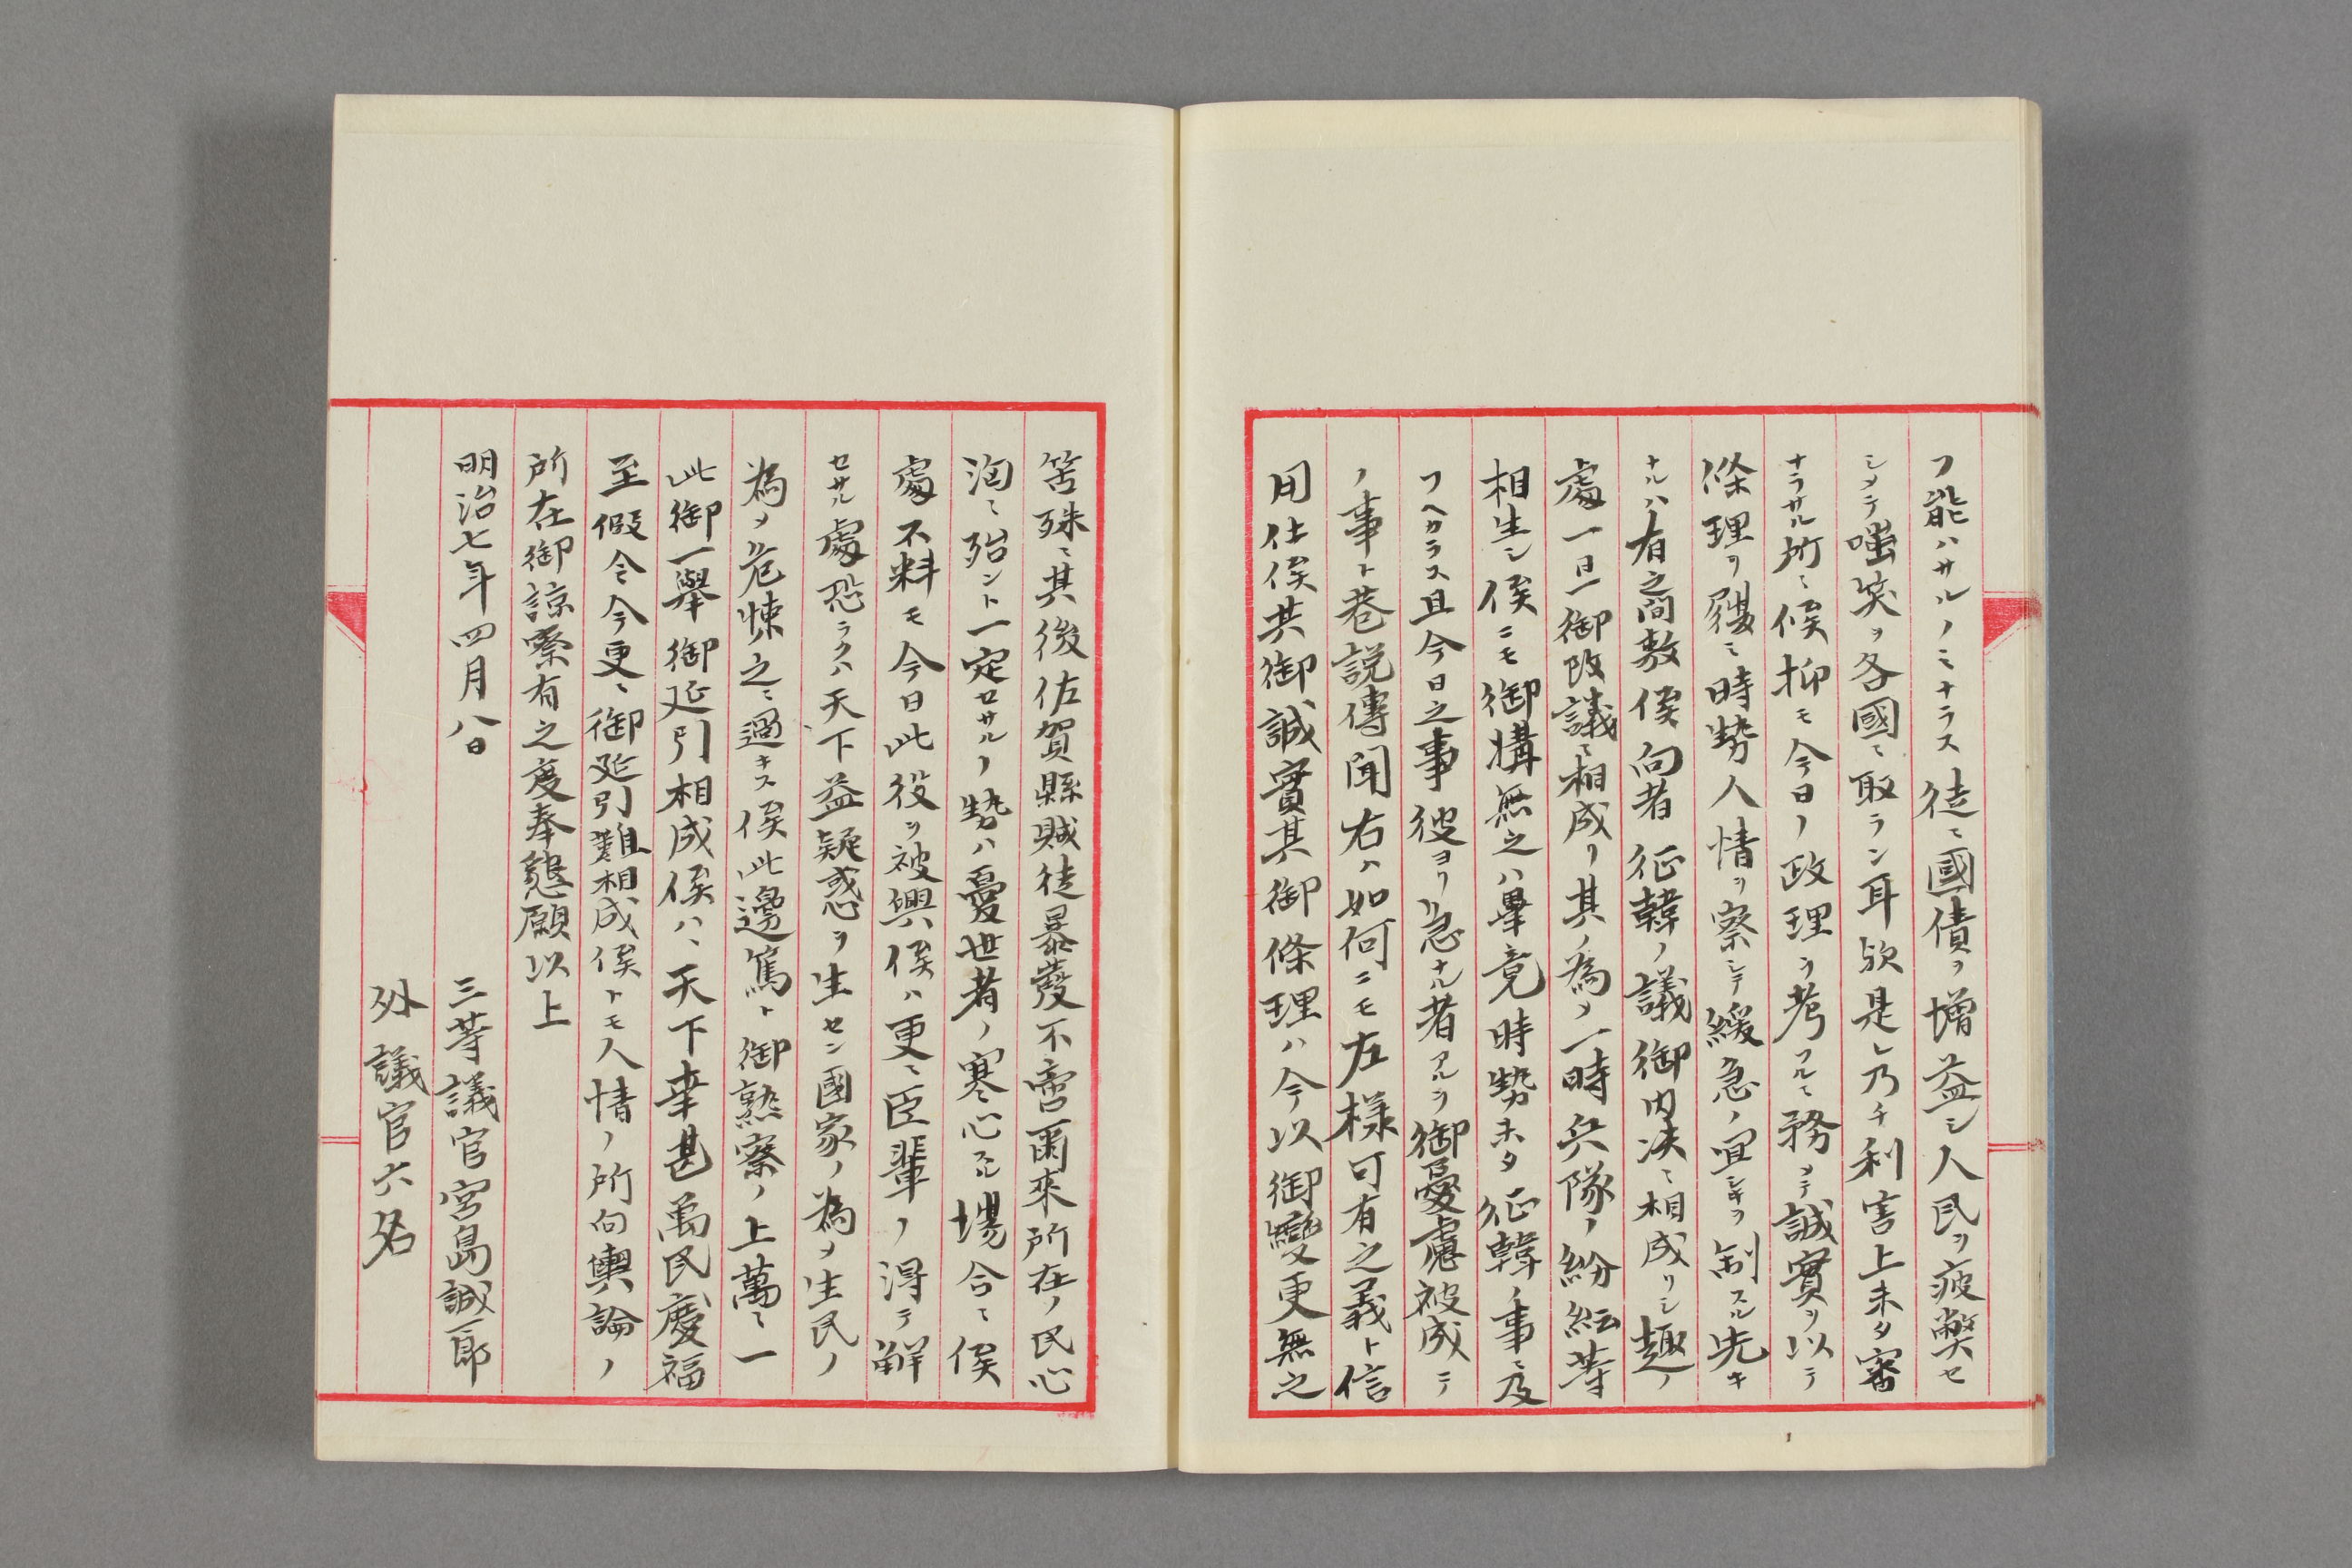 フ能ハサルノミナラス徒ニ國債ヲ増益シ人民ヲ疲弊セ
シメテ嗤笑ヲ各國ニ取ラン耳欤是レ乃チ利害上未タ審
ナラサル所ニ候抑モ今日ノ政理ヲ考フルニ務メテ誠實ヲ以テ
條理ヲ履ミ時勢人情ヲ察シテ緩急ノ宜シキヲ制スル先キ
ナルハ有之間敷候向者征韓ノ議御内决ニ相成リシ趣ノ
處一旦御改議ニ相成リ其ノ為メ一時兵隊ノ紛紜等
相生シ候ニモ御構無之ハ畢竟時勢未タ征韓ノ事ニ及
フヘカラス且今日之事彼ヨリ急ナル者アルヲ御憂慮被成テ
ノ事ト巷説傳聞右ハ如何ニモ左様可有之義ト信
用仕候共御誠實其御條理ハ今以御變更無之
筈殊ニ其後佐賀縣賊徒暴發不啻爾來所在ノ民心
洶ニ殆ント一定セサルノ勢ハ憂世者ノ寒心スル場合ニ候
處不料モ今日此役ヲ被興候ハ更ニ臣輩ノ得テ解
セサル處恐ラクハ天下益疑惑ヲ生セン國家ノ為メ生民ノ
為メ危悚之ニ過キス候此邊篤ト御熟察ノ上萬ニ一
此御一舉御延引相成候ハヽ天下幸甚萬民慶福
至假令今更ニ御延引難相成候トモ人情ノ所向輿論ノ
所在御諒察有之度奉懇願以上
明治七年四月八日
三等議官宮島誠一郎
外議官六名